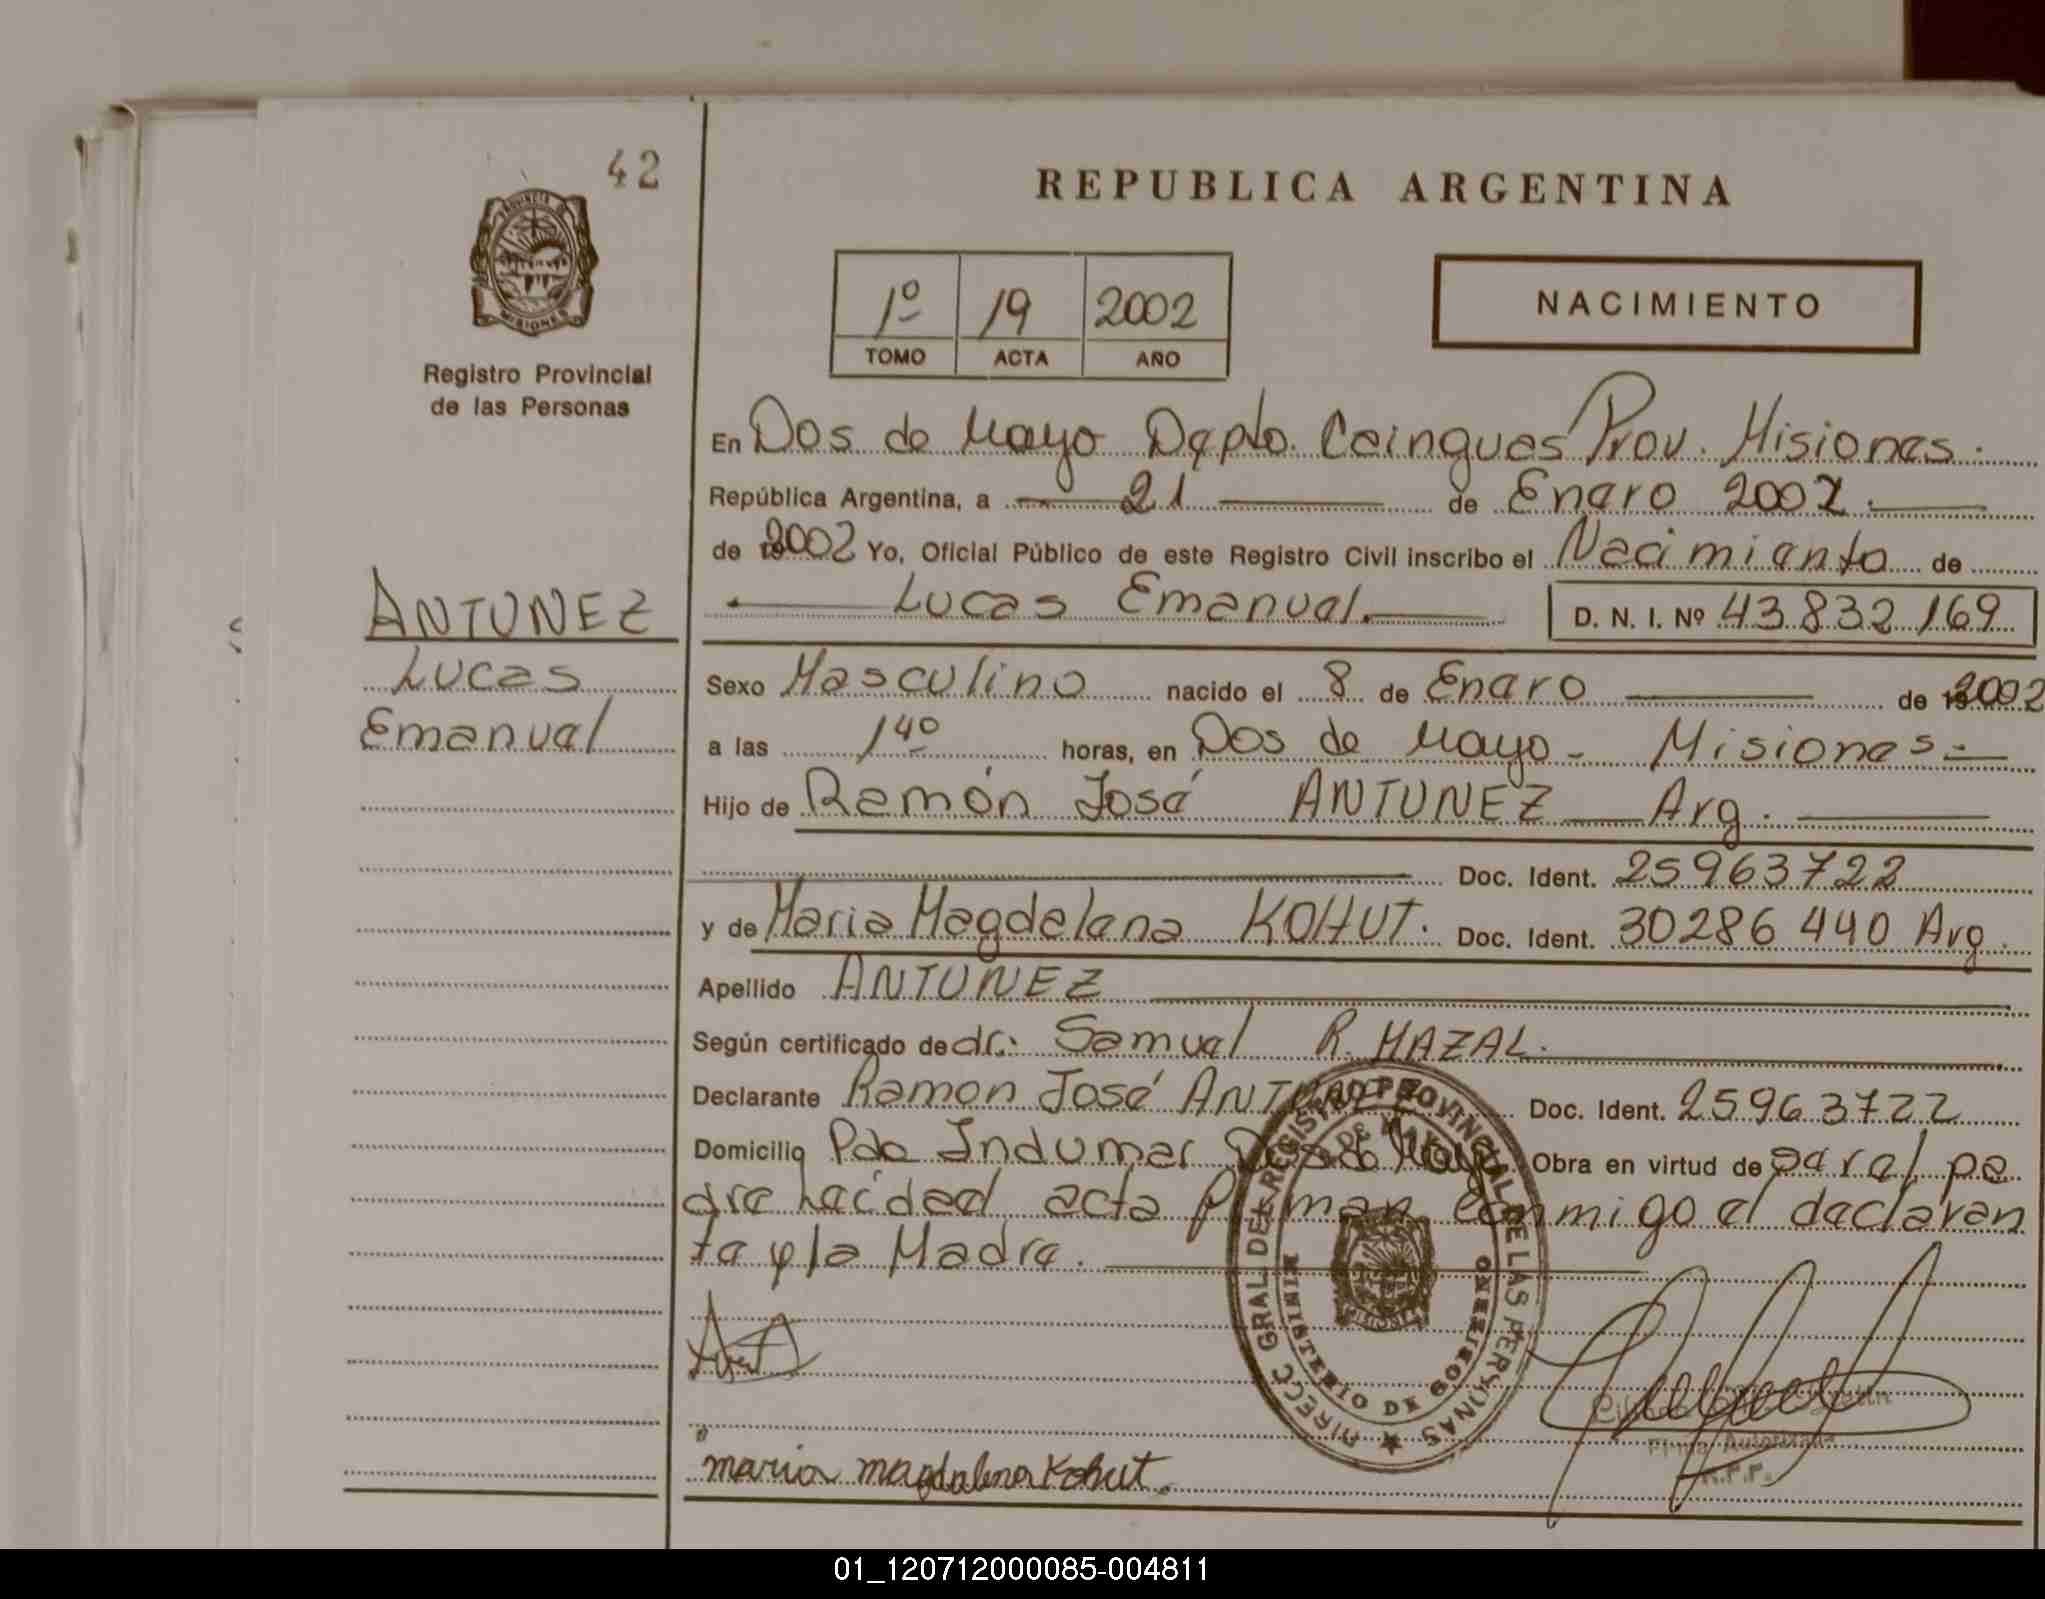 42
PROVINCIA DE
MISIONES
Registro Provincial
de las Personas
ANTUNEZ
Lucas
Emanuel
REPUBLICA ARGENTINA
1º 19 2002
TOMO ACTA AÑO
NACIMIENTO
En Dos de Mayo Depto. Cainguas Prov. Misiones.
República Argentina, a 21 de Enero 2002.
de 2002 Yo, Oficial Público de este Registro Civil inscribo el Nacimiento de
Lucas Emanuel. D. N. I. Nº 43.832.169
Sexo Masculino nacido el 8 de Enero de 2002
a las 14º horas, en Dos de Mayo - Misiones -
Hijo de Ramón José ANTUNEZ Arg.
Doc. Ident. 25963722
y de Maria Magdalena KOHUT. Doc. Ident. 30286440 Arg.
Apellido ANTUNEZ
Según certificado de dr.: Samuel R. MAZAL.
Declarante Ramon José ANTUNEZ Doc. Ident. 25963722
Domicilio Pdo Indumar Dos de Mayo Obra en virtud de ser el pa
dre leída el acta firman conmigo el declaran
te y la Madre.
DIRECC GRAL DEL REGISTRO PROVINCIAL DE LAS PERSONAS
MINISTERIO DE GOBIERNO
DE MAYO
MISIONES
Firma Autorizada
R.P.P.
maria magdalena Kohut.
01_120712000085-004811